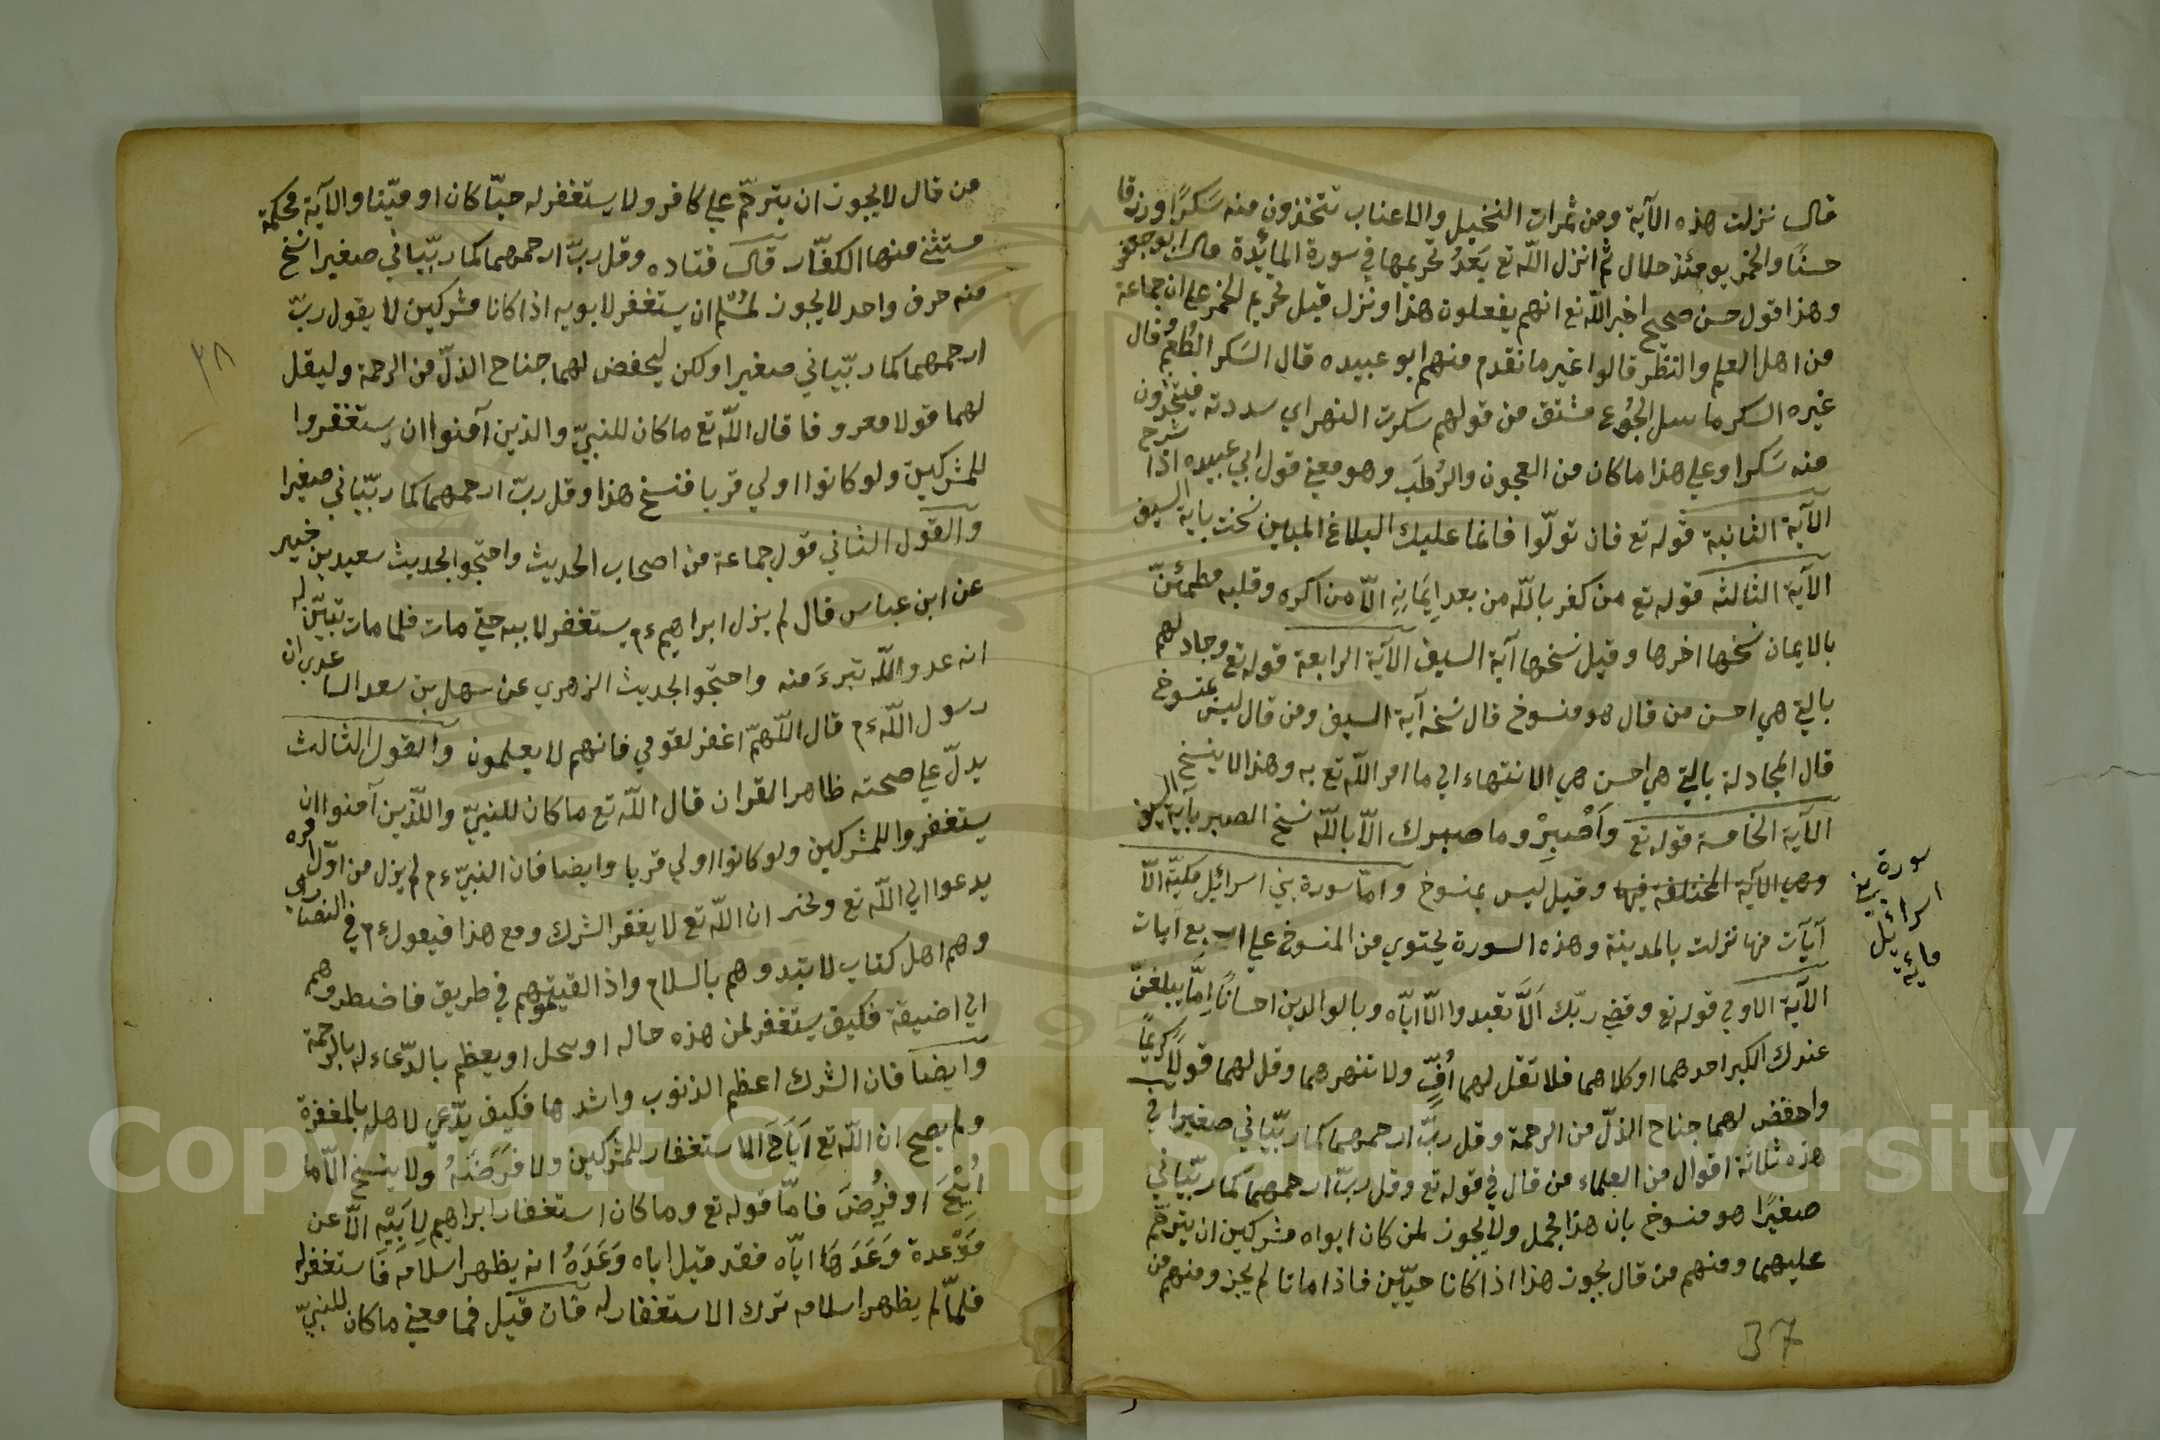 قال نزلت هذه الآية ومن ثمرات النخيل والاعناب تتخذون منه سَكرًا ورزقا
حسنًا والخمر يومئذ حلال ثم انزل اللّه تع بَعدُ تحريمها في سورة المائدة قال ابو جعفر
وهذا قول حسن صحيح اخبر اللّه تع انهم يفعلون هذا ونزل قبل تحريم الخمر على ان جماعة
من اهل العلم والنظر قالوا غير ما تقدم منهم ابو عبيده قال السَكر الطُعْمُ وقال
غيره السكر ما سل الجُوع مشتق من قولهم سكرت النهر اي سددته فيتخذون
منه سَكرا وعلى هذا ما كان من العجون والرُطَب وهو معنى قول ابي عبيده اذا شرح
الآية الثانية قوله تع فان تولّوا فانما عليك البلاغ المبين نسخت باية السيف
الآية الثالثه قوله تع من كفر باللّه من بعد اِيمَانِهِ الاّ من اكره وقلبه مطمئنّ
بالايمان نسخها اخرها وقيل نسخها آية السيف الآية الرابعة قوله تع وجادلهم
بالتي هي احسن من قال هو منسوخ قال نسخه آية السيف ومن قال ليس بمنسوخ
قال المجادلة بالتي هي احسن هي الانتهاء الي ما امر اللّه تع به وهذا لا ينسخ
الآية الخامسة قوله تع وَاَصْبِرْ وما صبرك الاّ باللّه نسخ الصبر باية السيف
وهي الآية المختلفه فيها وقيل ليس بمنسوخ وامّا سورة بني اسرائيل مكيّة الاّ
آيآت منها نزلت بالمدينة وهذه السورة يحتوي من المنسوخ على اربع ايات
الآية الاولي قوله تع وقضي ربّك اَلاَّ تعبدوا الاّ ايّاه وبالوالدين احسانًا اِمَّا يبلغنّ
عندك الكبر احدهما او كلاهما فلا تقل لهما اُفٍّ ولا تنهرهما وقل لهما قولًا كريمًا
واحفض لهما جناح الذلّ من الرحمة وقل ربّ ارحمهما كما ربّياني صغيرا في
هذه ثلاثة اقوال من العلماء من قال في قوله تع وقل ربّ ارحمهما كما ربّياني
صغيرًا هو منسوخ بان هذا مجمل ولا يجوز لمن كان ابواه مشركين ان يترحّم
عليهما ومنهم من قال يجوز هذا اذا كانا حيّين فاذا ماتا لم يجز ومنهم من
سورة بني
اسرائيل
مائة
37
من قال لا يجوز ان يترحّم على كافر ولا يستغفر له حيّا كان او ميّتا والآية محكمة
مستثنى منها الكفّار قال قتاده وقل ربّ ارحمهما كما ربّياني صغيرا نسخ
منه حرف واحد لا يجوز لمُسْلِم ان يستغفر لابويه اذا كانا مشركين لا يقول ربّ
ارحمهما كما ربّياني صغيرا ولكن ليحفض لهما جناح الذلّ من الرحمة وليقل
لهما قولا معروفا قال اللّه تع ما كان للنبيّ والذين آمنوا ان يستغفروا
للمشركين ولو كانوا اولي قربا فنسخ هذا وقل ربّ ارحمهما كما ربّياني صغيرا
والقول الثاني قول جماعة من اصحاب الحديث واحتجّوا بحديث سعيد بن خيبر
عن ابن عباس قال لم يزل ابراهيم ءم يستغفر لابيه حتي مات فلما مات تبيّن له
انه عدو اللّه تبرءَ منه واحتجّوا بحديث الزهري عن سهل بن سعد الساعدي ان
رسول اللّه ءم قال اللّهمّ اغفر لقومي فانهم لا يعلمون والقول الثالث
يدلّ على صحته ظاهر القران قال اللّه تع ما كان للنبيّ واللّذين آمنوا ان
يستغفروا للمشركين ولو كانوا اولي قربا وايضا فان النبيّ ءم لم يزل من اوّل امره
يدعوا الي اللّه تع ويخبر ان اللّه تع لا يغفر الشرك ومع هذا فيعول ءم في النصاري
وهم اهل كتاب لا تبدوهم بالسلام واذا لقيتموهم في طريق فاضطروهم
الي اضيقة فكيف يستغفر لمن هذه حاله او يبجل او يعظم بالدّعاء له بالرحمة
وايضا فان الشرك اعظم الذنوب واشدها فكيف يدّعي لاهله بالمغفرة
ولم يصح ان اللّه تع اَبَاحَ الاستغفار للمشركين ولا فَرَضَهُ ولا ينسخ الاّ ما
اُبِيْحَ او فُرِضَ فامّا قوله تع وما كان استغفار ابراهيم لِاَبَيْهِ الاّ عن
مَوْعدة وَعَدَهَا ايّاه فقد قيل اباه وَعَدَهُ انه يظهر اسلامه فَاستغفرله
فلمّا لم يظهر اسلامه ترك الاستغفار له فان قيل فما معني ما كان للنبيّ
٣٨
Copyright © King Saud University
1957